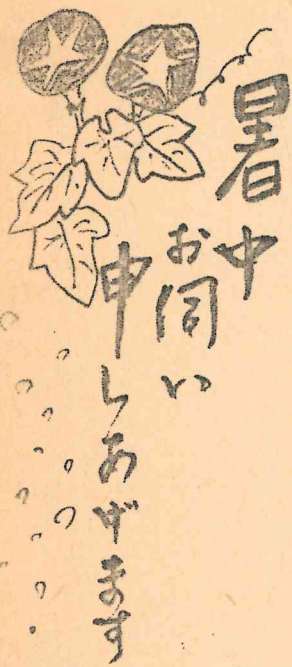 暑中
お伺い
申しあげます